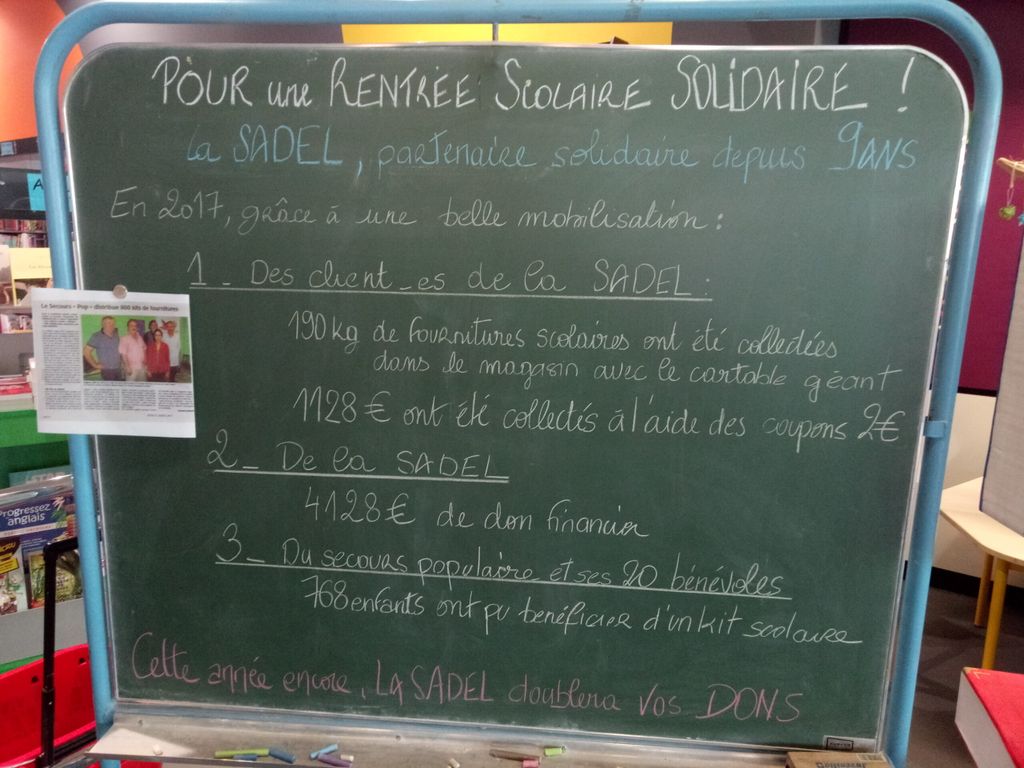 POUR une RENTRÉE SCOLAIRE SOLIDAIRE !
La SADEL, partenaire solidaire depuis 9 ANS
En 2017, grâce à une belle mobilisation :
1 - Des client_es de la SADEL :
190 kg de fournitures scolaires ont été collectées
dans le magasin avec le cartable géant
1128 € ont été collectés à l'aide des coupons 2€
2 - De la SADEL
4128 € de don financier
3 - Du secours populaire et ses 20 bénévoles
768 enfants ont pu bénéficier d'un kit scolaire
Cette année encore, LA SADEL doublera vos DONS
Le Secours « Pop » distribue 800 kits de fournitures
Progressez
anglais